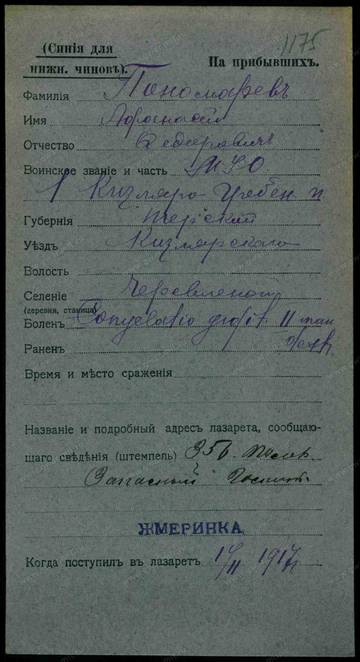 1175
(Синія для
нижн. чиновъ).
На прибывшихъ.
Фамилія Пономаревъ
Имя Афанасій
Отчество Федоровичъ
Воинское званіе и часть
1 Кизляро Гребен п
Губернія Терской
Уѣздъ Кизлярскаго
Волость
Селеніе Червленой
(деревня, станица)
Боленъ II
Раненъ
Время и мѣсто сраженія
Названіе и подробный адресъ лазарета, сообщаю-
щаго свѣдѣнія (штемпель) 356
Запасный Госпит.
ЖМЕРИНКА
Когда поступилъ въ лазаретъ 1917